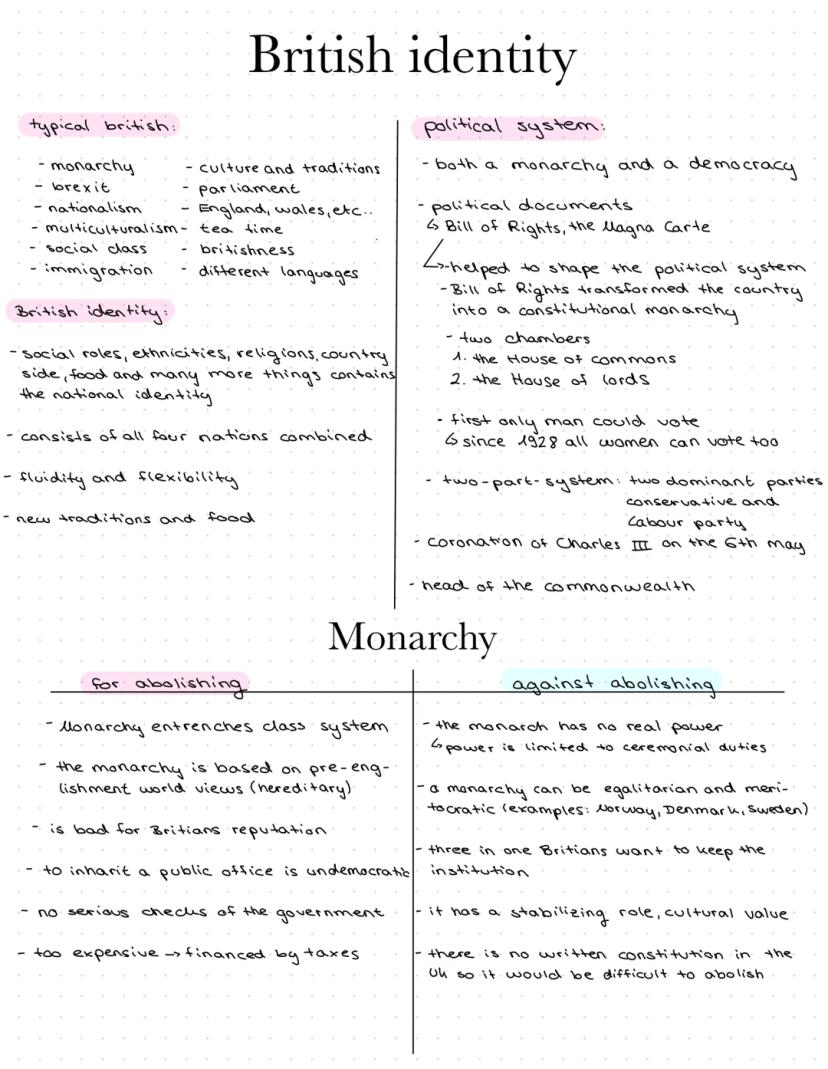 British identity
typical british:
- monarchy
- brexit
- nationalism
- multiculturalism
- social class
- immigration
- culture and traditions
- parliament
- England, wales, etc..
- tea time
- britishness
- different languages
British identity:
- social roles, ethnicities, religions, country
side, food and many more things contains
the national identity
- consists of all four nations combined
- fluidity and flexibility
- new traditions and food
political system:
- both a monarchy and a democracy
- political documents
↳ Bill of Rights, the Magna Carte
↳ helped to shape the political system
- Bill of Rights transformed the country
into a constitutional monarchy
- two chambers
1. the House of commons
2. the House of lords
- first only man could vote
↳ since 1928 all women can vote too
- two-part-system: two dominant parties
conservative and
Labour party
- coronation of Charles III on the 6th may
- head of the commonwealth
Monarchy
for abolishing
- Monarchy entrenches class system
- the monarchy is based on pre-eng-
lishment world views (hereditary)
- is bad for Britians reputation
- to inharit a public office is undemocratic
- no serious checks of the government
- too expensive → financed by taxes
against abolishing
- the monarch has no real power
↳ power is limited to ceremonial duties
- a monarchy can be egalitarian and meri-
tocratic (examples: Norway, Denmark, Sweden)
- three in one Britians want to keep the
institution
- it has a stabilizing role, cultural value
- there is no written constitution in the
Uk so it would be difficult to abolish